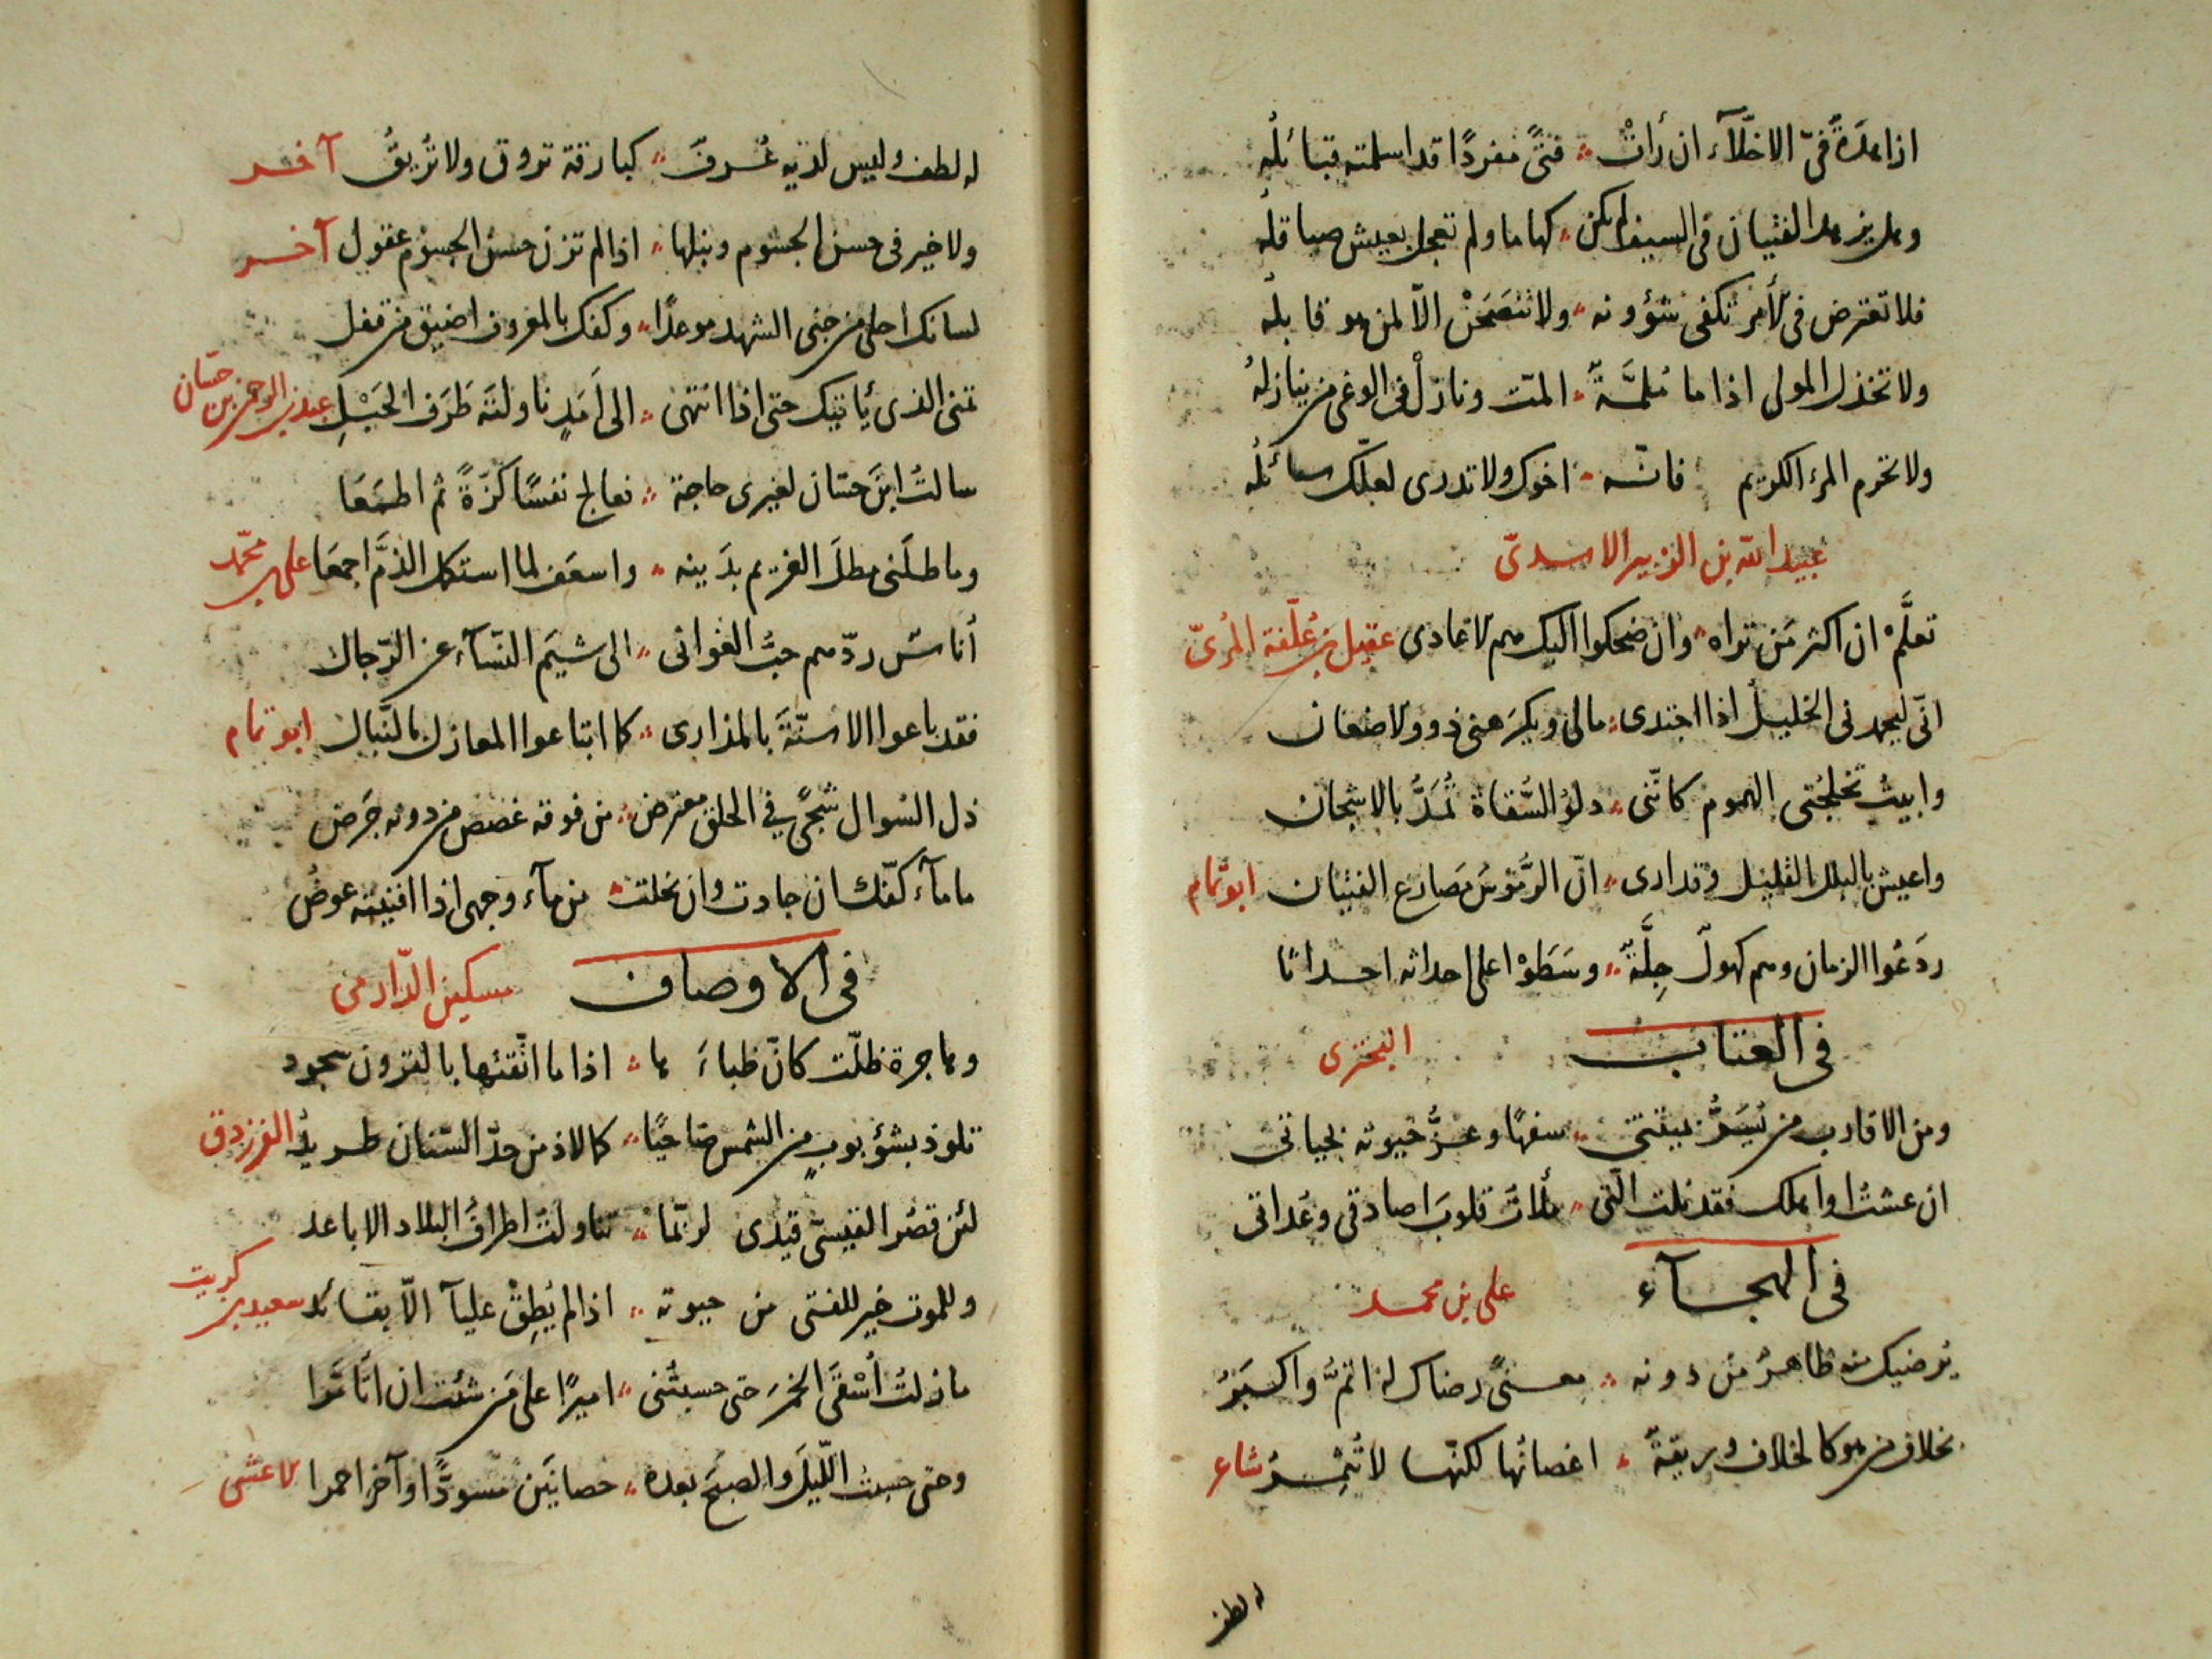 فتًى مفردًا قد اسلمته قبائله
فلا تعترض في الأمر تكفى شؤونه ولا تنصحن الّا لمن هو قابله
ولا تخذل المولى اذا ما مُلمَّةٌ المّت ونازلْ في الوغى من ينازلهُ
ولا تحرم المرء الكريم فانّه اخوك ولا تدرى لعلّك سائله
عبد الله بن الزبير الاسدىّ
تعلَّمْ ان اكثر مَن تراه وان ضحكوا اليك هم الاعادى عقيل بن عُلّفة المُرىّ
انّى ليحمدنى الخليل اذا اجتدى مالى ويكرهنى ذوو الاضغان
وابيتُ تخلجُنى الهموم كانّنى دلوُ السُّقاة تُمَدُّ بالاشطان
واعيش بالبلل القليل وقد ارى انّ الرُّمُوسَ مَصارع الفتيان ابو تمام
ردَعُوا الزمان وهم كهولٌ جِلَّةٌ وسَطَوْا على احداثه احداثا
فى العتاب البحترى
ومن الاقارب من يُسَرُّ بميتتى سفهًا وعزُّ حيوته بحياتى
ان عشتُ او اهلك فقد نلت الّتى ملأت قلوبَ اصادقى وعُداتى
فى الهجآء على بن محمد
يُرضيك منه ظاهرٌ من دونه معنىً رضاك له اتمُّ واكبرُ
بخلاف من هو كالخلاف وريقةٌ اغصانُها لكنّها لا تُثمِرُ شاعر
له لطف
له لطف وليس لديه عُرفٌ كبارقة تروق ولا تُريقُ آخر
ولا خير فى حسن الجسوم ونبلها اذا لم تزن حسنَ الجسوم عقول آخر
لسانك احلى من جنى الشهد موعدًا وكفّك بالمعروف اضيق من قفل
تمنى الذى يأتيك حتى اذا انتهى الى اَمَدٍ ناولتَه طَرَفَ الحَبْلِ عبد الرحمن بن حسّان
سالتُ ابنَ حسّان لغيرى حاجة فعالج نفسًا كَزّةً ثم اطمَعَا
وماطلَنى مطلَ الغريم بدَينه واسعَف لما استكمل الذمَّ اجمعَا على بن محمّد
أناسٌ ردّهم حبُّ الغوانى الى شيَم النّسآء عن الرّجال
فقد باعوا الاسنّةَ بالمذارى كما ابتاعوا المغازل بالنّبال ابو تمام
ذل السوال شجًى فى الحلق معترض من فوقه غصص من دونه جَرَض
ما مآء كفّك ان جادت وان بخلت من مآء وجهى اذا افنيته عوضُ
فى الاوصاف مسكين الدّارمى
وهاجرة ظلّت كانّ ظباءَها اذا ما اتّقتها بالقرون سجود
تلوذ بشؤبوبٍ من الشمس ضاحيًا كما لاذ من حدّ السّنان طريدُ الفرزدق
لئن قصّر القيسىّ قيدى لربّما تناولتُ اطرافَ البلاد الاباعد
وللموت خير للفتى من حيوته اذا لم يُطِقْ عليآ الّا بقائد
ما زلتُ أُسْقَى الخمرَ حتى حسبتُنى اميرًا على من شئت ان اتامّرا
وحتى حسبتُ اللّيلَ والصبحَ بعده حصانَين مسودًّا وآخر احمرا لاعشى